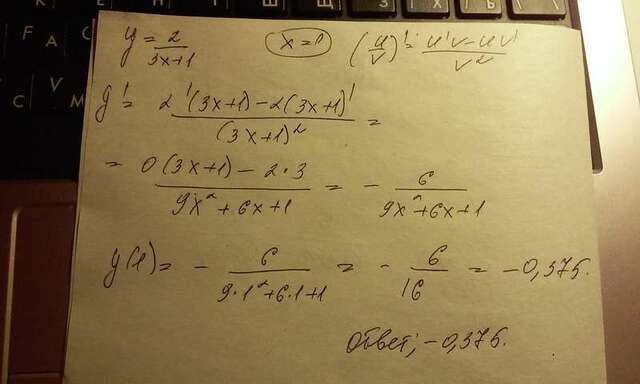 y = 2/(3x+1) x=1 (u/v)' = (u'v-uv')/v²
y' = (2'(3x+1)-2(3x+1)')/(3x+1)² =
= (0(3x+1)-2·3)/(9x²+6x+1) = - 6/(9x²+6x+1)
y(1) = - 6/(9·1²+6·1+1) = - 6/16 = -0,375.
Ответ: -0,375.